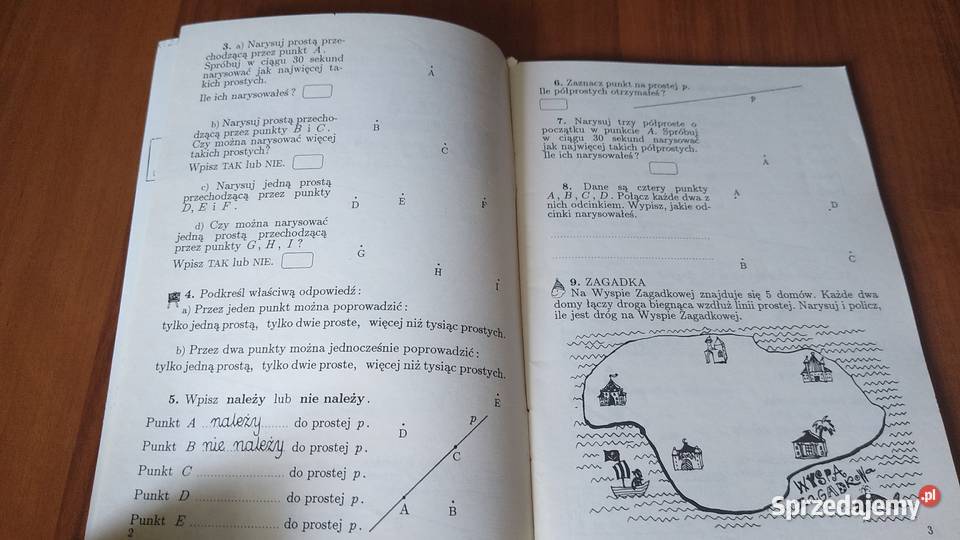 3. a) Narysuj prostą prze-
chodzącą przez punkt A.
Spróbuj w ciągu 30 sekund
narysować jak najwięcej ta-
kich prostych.
A
Ile ich narysowałeś?
b) Narysuj prostą przecho-
dzącą przez punkty B i C.
Czy można narysować więcej
takich prostych?
Wpisz TAK lub NIE.
B
C
c) Narysuj jedną prostą
przechodzącą przez punkty
D, E i F.
D
E
F
d) Czy można narysować
jedną prostą przechodzącą
przez punkty G, H, I?
Wpisz TAK lub NIE.
G
H
I
4. Podkreśl właściwą odpowiedź:
a) Przez jeden punkt można poprowadzić:
tylko jedną prostą, tylko dwie proste, więcej niż tysiąc prostych.
b) Przez dwa punkty można jednocześnie poprowadzić:
tylko jedną prostą, tylko dwie proste, więcej niż tysiąc prostych.
5. Wpisz należy lub nie należy.
Punkt A ..należy........ do prostej p.
Punkt B nie należy do prostej p.
Punkt C ...................... do prostej p.
Punkt D ...................... do prostej p.
Punkt E ...................... do prostej p.
E
p
D
C
A
B
2
6. Zaznacz punkt na prostej p.
Ile półprostych otrzymałeś?
p
7. Narysuj trzy półproste o
początku w punkcie A. Spróbuj
w ciągu 30 sekund narysować
jak najwięcej takich półprostych.
Ile ich narysowałeś?
A
8. Dane są cztery punkty
A, B, C, D. Połącz każde dwa z
nich odcinkiem. Wypisz, jakie od-
cinki narysowałeś.
A
D
B
C
9. ZAGADKA
Na Wyspie Zagadkowej znajduje się 5 domów. Każde dwa
domy łączy droga biegnąca wzdłuż linii prostej. Narysuj i policz,
ile jest dróg na Wyspie Zagadkowej.
WYSPA
ZAGADKOWA
3
Sprzedajemy.pl